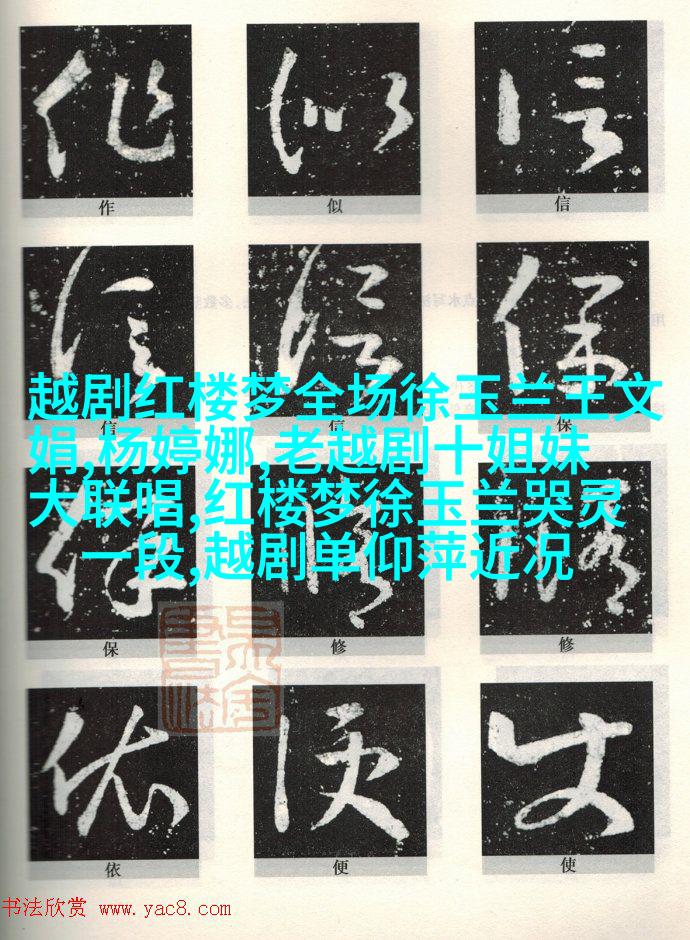 作 似 信
信 信 保
越剧红楼梦全场徐玉兰王文
娟,杨婷娜,老越剧十姐妹
大联唱,红楼梦徐玉兰哭灵
一段,越剧单仰萍近况
保 修 修
依 便 使
书法欣赏 www.yac8.com